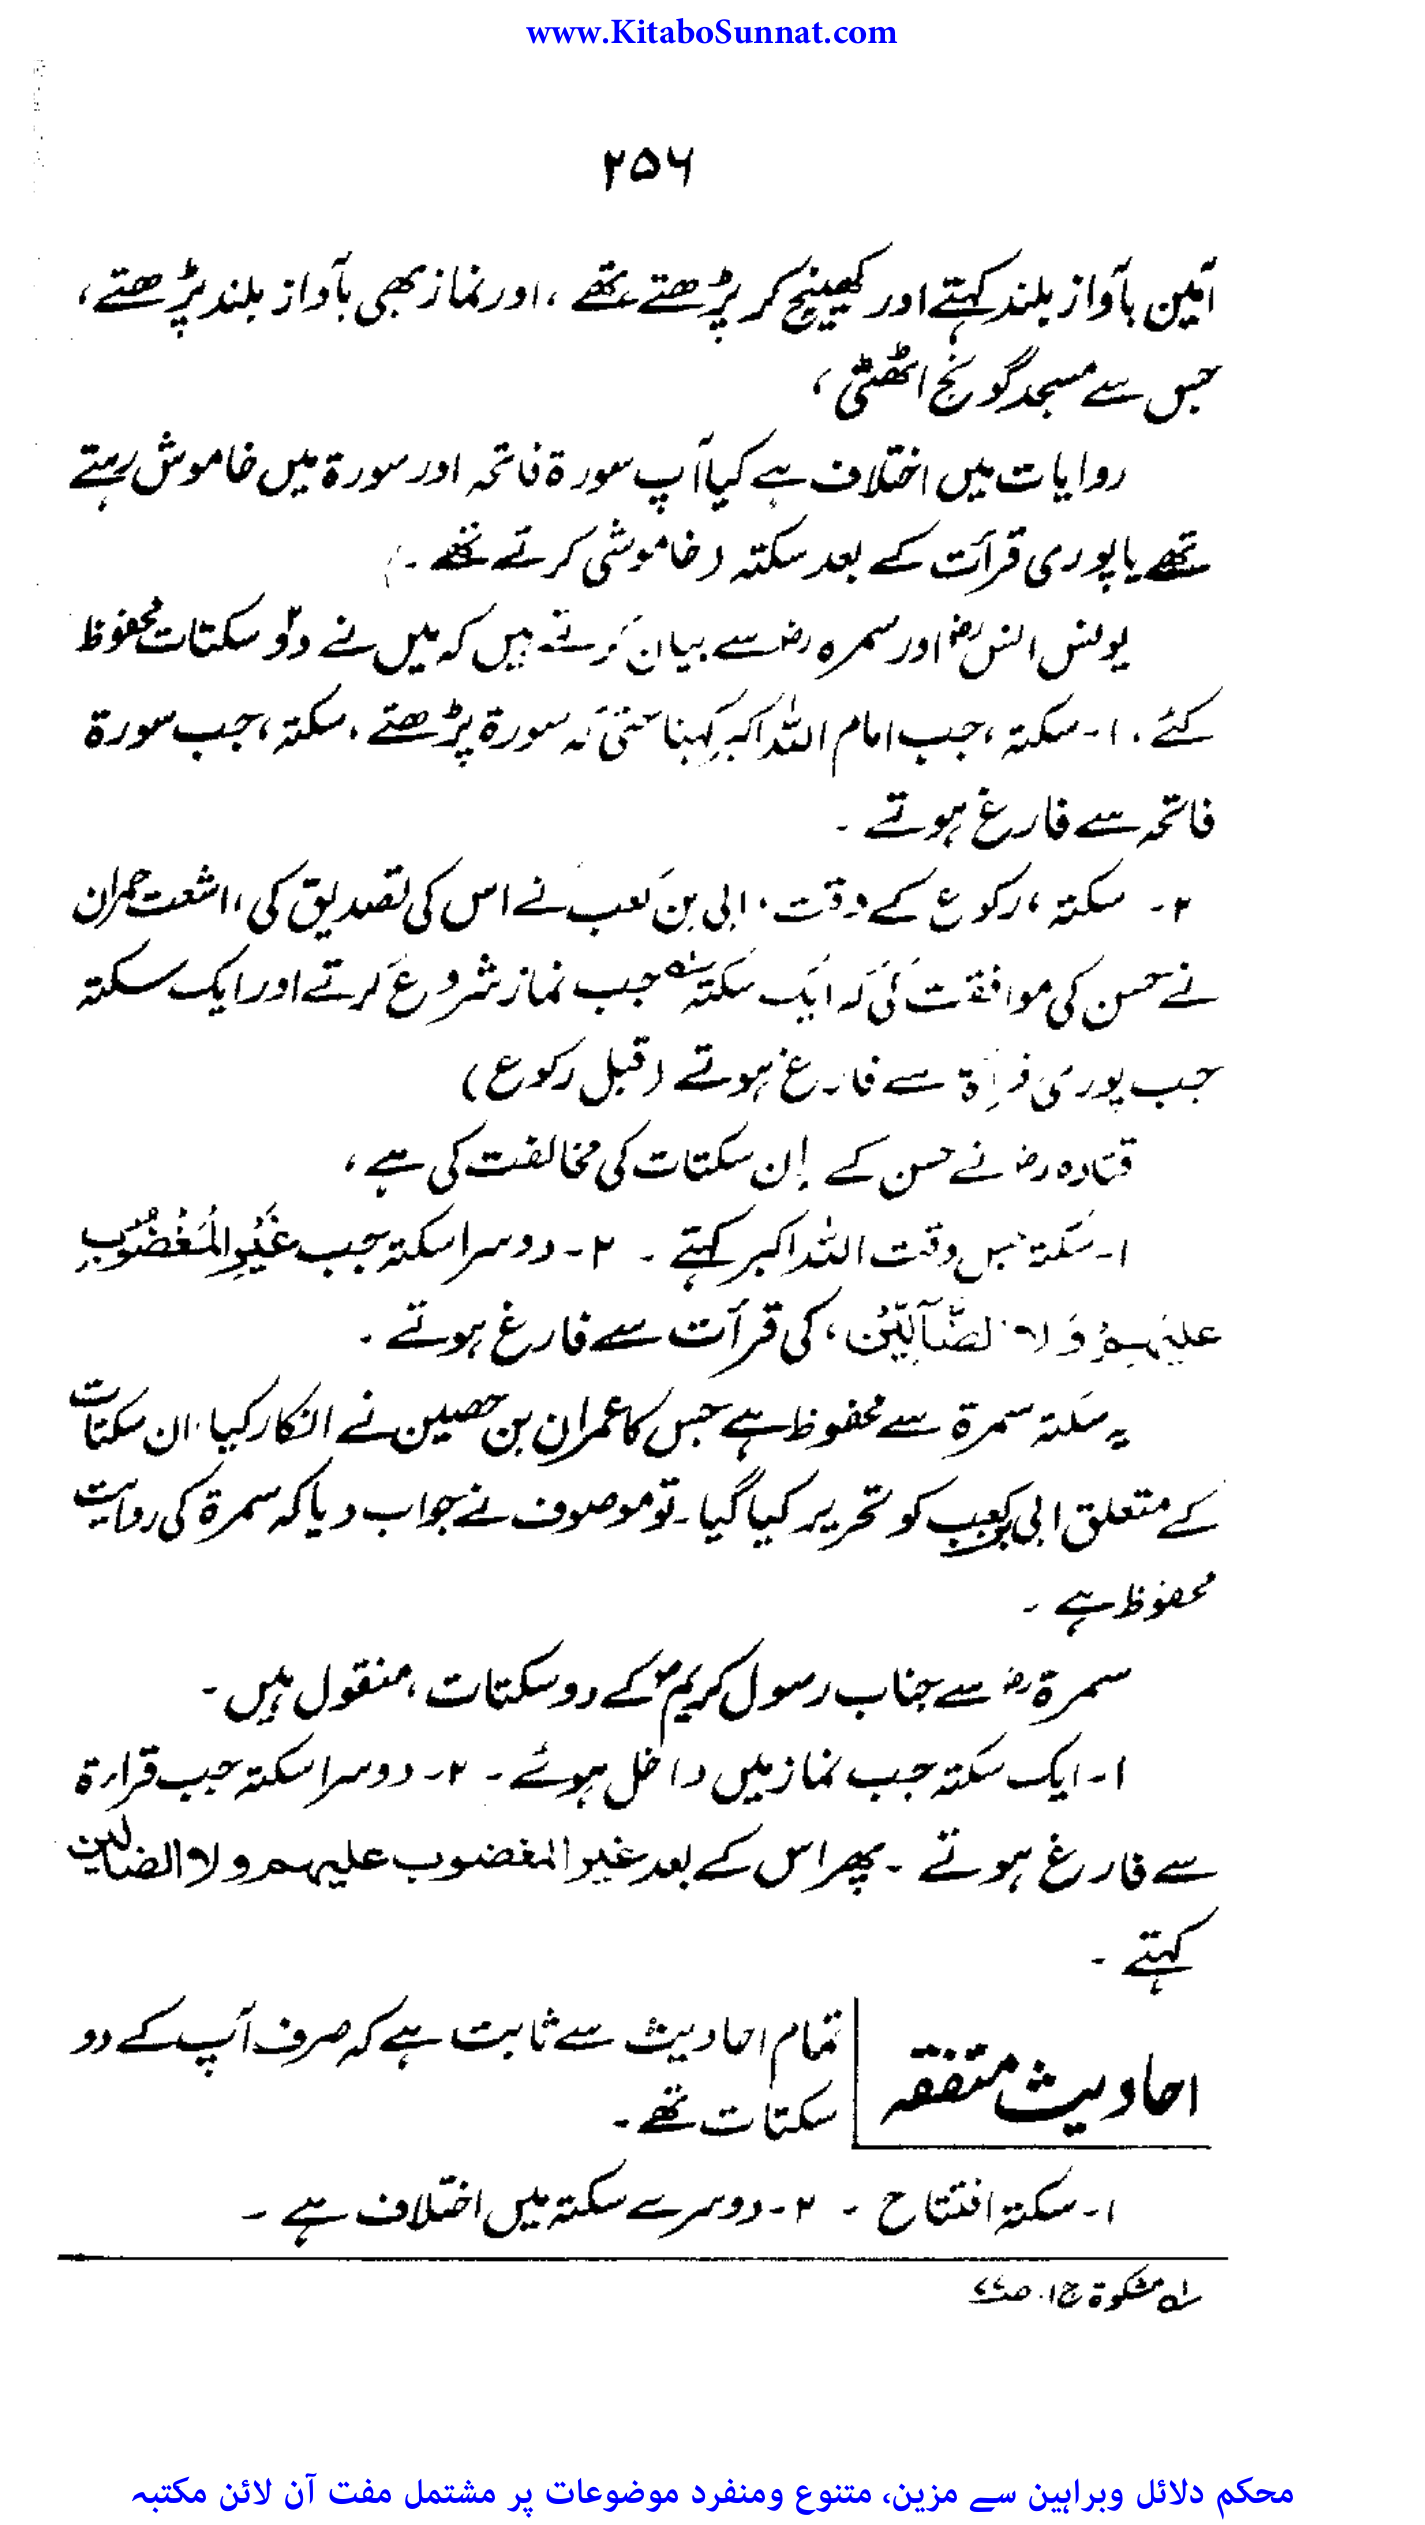 www.KitaboSunnat.com
۲۵۶
آمین بآواز بلند کہتے اور کھینچ کر پڑھتے تھے، اور نماز بھی بآواز بلند پڑھتے،
جس سے مسجد گونج اٹھتی،
روایات میں اختلاف ہے کیا آپ سورۃ فاتحہ اور سورۃ میں خاموش رہتے
تھے یا پوری قرأت کے بعد سکتہ (خاموشی کرتے تھے۔)
یونس انس رض اور سمرہ رض سے بیان کرتے ہیں کہ میں نے دو سکتات محفوظ
کئے، ۱۔ سکتہ، جب امام اللہ اکبر کہنا حتیٰ کہ سورۃ پڑھتے، سکتہ، جب سورۃ
فاتحہ سے فارغ ہوتے ۔
۲۔ سکتہ، رکوع کے وقت، ابی بن کعب نے اس کی تصدیق کی، اشعت حمران
نے حسن کی موافقت کی کہ ایک سکتہ ؎۱ جب نماز شروع کرتے اور ایک سکتہ
جب پوری قرأۃ سے فارغ ہوتے (قبل رکوع)
قتادہ رض نے حسن کے اِن سکتات کی مخالفت کی ہے،
۱۔ سکتہ جس وقت اللہ اکبر کہتے ۔ ۲۔ دوسرا سکتہ جب غَیْرِالْمَغْضُوْبِ
علیہِمْ وَلا الضَّآلِّیْنَ، کی قرأت سے فارغ ہوتے ۔
یہ سکتہ سمرۃ سے محفوظ ہے جس کا عمران بن حصین نے انکار کیا، ان سکتات
کے متعلق ابی بن کعب کو تحریر کیا گیا۔ تو موصوف نے جواب دیا کہ سمرۃ کی روایت
محفوظ ہے ۔
سمرۃ رض سے جناب رسول کریم ؐ کے دو سکتات، منقول ہیں۔
۱۔ ایک سکتہ جب نماز میں داخل ہوئے ۔ ۲۔ دوسرا سکتہ جب قراءۃ
سے فارغ ہوتے ۔ پھر اس کے بعد غیر المغضوب علیہم ولا الضالین
کہتے ۔
احادیث متفقہ
تمام احادیث سے ثابت ہے کہ صرف آپ کے دو
سکتات تھے۔
۱۔ سکتہ افتتاح ۔ ۲۔ دوسرے سکتہ میں اختلاف ہے ۔
؎۱ مشکوۃ ج۱، ص۷۷
محکم دلائل وبراہین سے مزین، متنوع ومنفرد موضوعات پر مشتمل مفت آن لائن مکتبہ